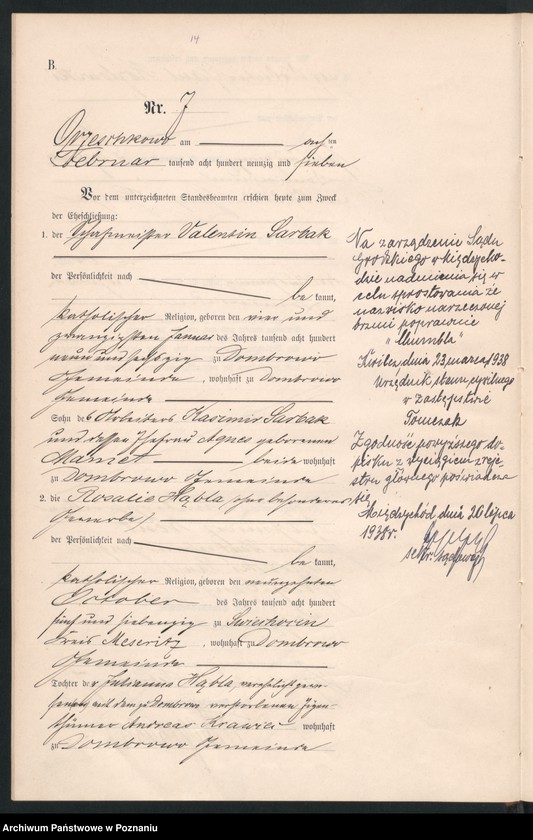 14
B.
Nr. 7
Orzeschkowo am achten
Februar tausend acht hundert neunzig und sieben
Vor dem unterzeichneten Standesbeamten erschien heute zum Zweck
der Eheschließung:
1. der Schafmeister Valentin Sarbak
der Persönlichkeit nach
be kannt,
katholischer Religion, geboren den vier und
zwanzigsten Januar des Jahres tausend acht hundert
neun und sechszig zu Dombrowo
Gemeinde, wohnhaft zu Dombrowo
Gemeinde
Sohn des Arbeiters Kasimir Sarbak
und dessen Ehefrau Agnes geborenen
beide wohnhaft
zu Dombrowo Gemeinde
2. die Rosalie Hąbla, ohne besonderes
Gewerbe,
der Persönlichkeit nach
be kannt,
katholischer Religion, geboren den neunzehnten
October des Jahres tausend acht hundert
fünf und siebenzig zu
Kreis Meseritz, wohnhaft zu Dombrowo
Gemeinde
Tochter der Julianna Hąbla, verehelicht gewe-
senen mit dem zu Dombrowo verstorbenen Eigen-
thümer Andreas Krawiec wohnhaft
zu Dombrowo Gemeinde
Na zarządzenie Sądu
Grodzkiego w Międzycho-
dzie nadmienia się w
celu sprostowania że
nazwisko narzeczonej
brzmi poprawnie
Kwilcz, dnia 23 marca 1938
Urzędnik stanu cywilnego
w zastępstwie
Tomczak
Zgodność powyższego do-
pisku z wyciągiem z reje-
stru głównego poświadcza
się
Międzychód dnia 20 lipca
1938 r.
sekr. sądowy
Archiwum Państwowe w Poznaniu